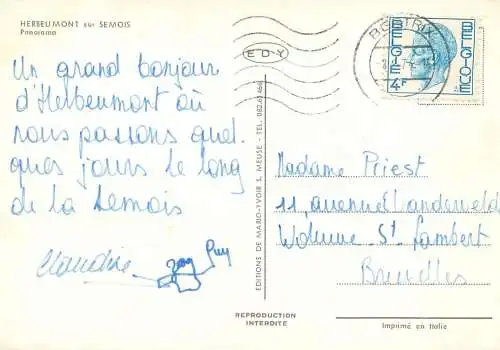 HERBEUMONT sur SEMOIS
Panorama
Un grand bonjour
d'Herbeumont où
nous passons quel
ques jours le long
de la Semois
Claudine Guy
EDITIONS DE MARIO-YVOIR S. MEUSE - TEL. 082.61466
REPRODUCTION
INTERDITE
EDY
BERTRIX
BELGIE BELGIQUE
4F
Madame Priest
11, avenue Vandervelde
Woluwe St Lambert
Bruxelles
Imprimé en Italie